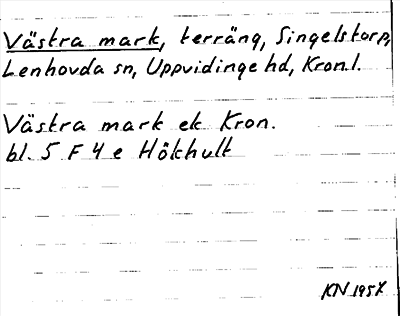 Västra mark, terräng, Singelstorp,
Lenhovda sn, Uppvidinge hd, Kron.l.
Västra mark ek Kron.
bl. 5 F 4 e Hökhult
KN 1957